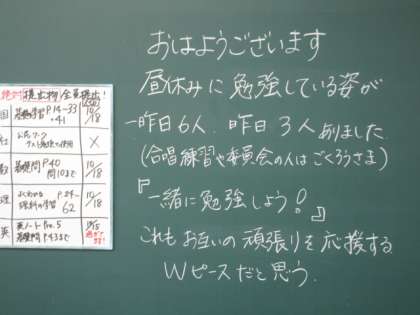 おはようございます
昼休みに勉強している姿が
一昨日6人、昨日3人ありました
(合唱練習や委員会の人はごくろうさま)
『一緒に勉強しよう!』
これもお互いの頑張りを応援する
Wピースだと思う.
絶対!提出物 全員提出!
国 基礎学習 P.14-33 ・41 10/18
社 公民ワーク テスト勉強で使用 ×
数 基礎問 P40 問10まで 10/18
理 よくわかる 理科の学習 P.24- 62 10/18
英 英ノート No.5 基礎問 P43まで